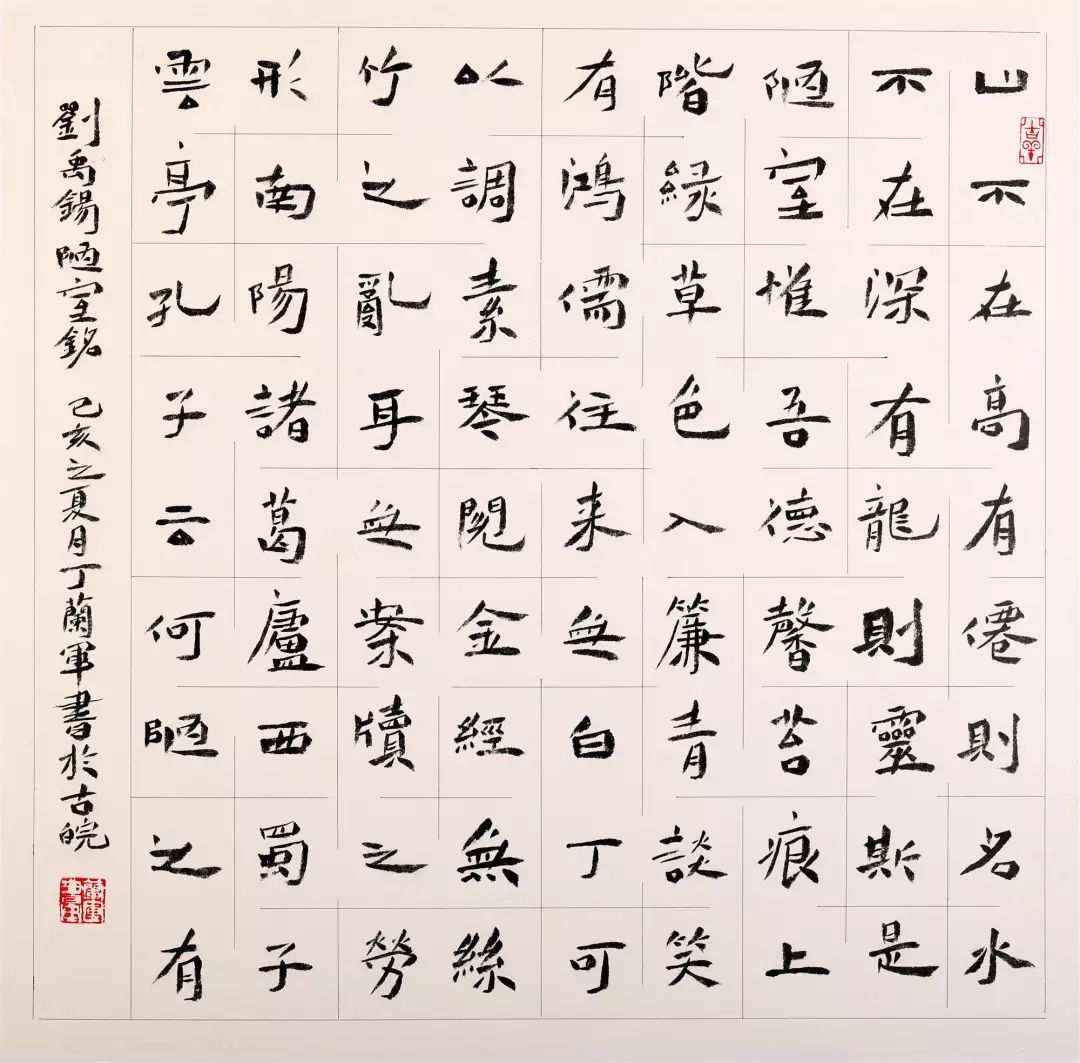 山不在高有僊則名水
不在深有龍則靈斯是
陋室惟吾德馨苔痕上
階緑草色入簾青談笑
有鴻儒往来無白丁可
以調素琴閱金經無絲
竹之亂耳無案牘之勞
形南陽諸葛廬西蜀子
雲亭孔子云何陋之有
劉禹錫陋室銘 己亥之夏月丁蘭軍書於古皖